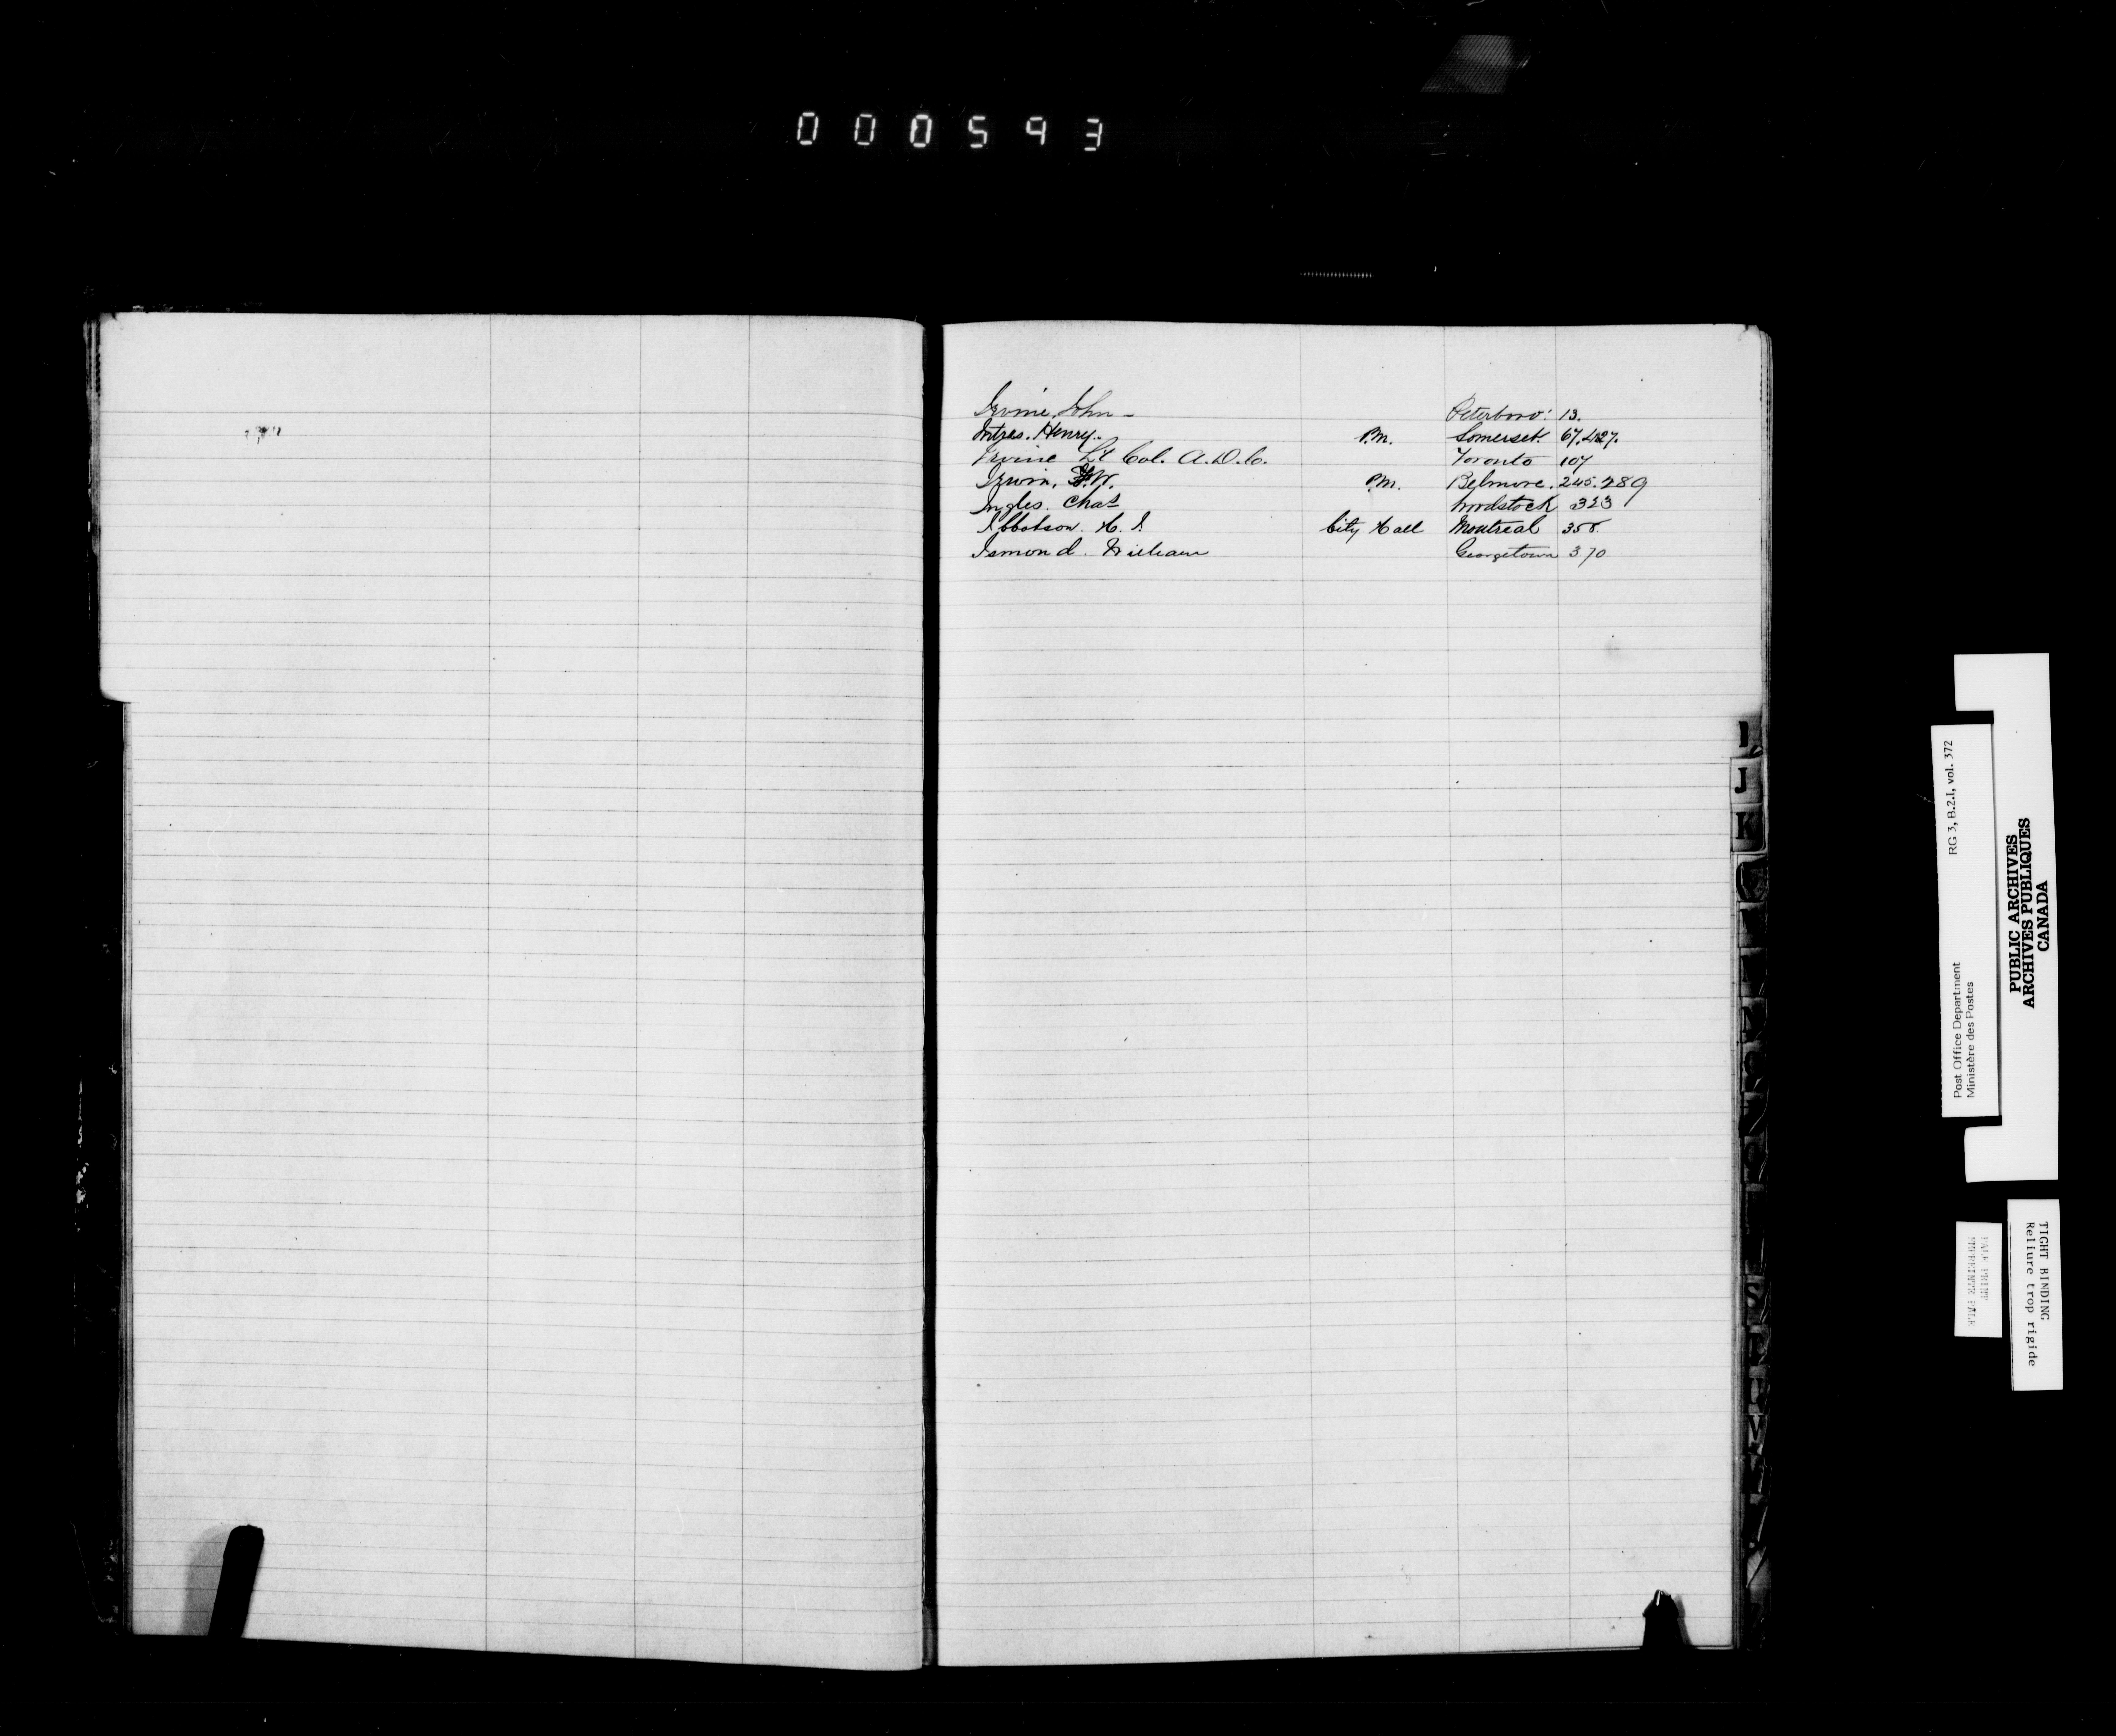 000593
Irvine, John - Peterboro: 13.
Henry. P.M. Somerset. 67.427.
Irvine Lt Col. A.D.C. Toronto 107
Irwin, W. P.M. Belmore. 245.289
Ingles. Chas Woodstock 323
Ibbotson. H. I. City Hall Montreal 358.
Ismond. William Georgetown 370
I
J
K
RG 3, B.2.I, vol. 372
Post Office Department
Ministère des Postes
PUBLIC ARCHIVES
ARCHIVES PUBLIQUES
CANADA
TIGHT BINDING
Reliure trop rigide